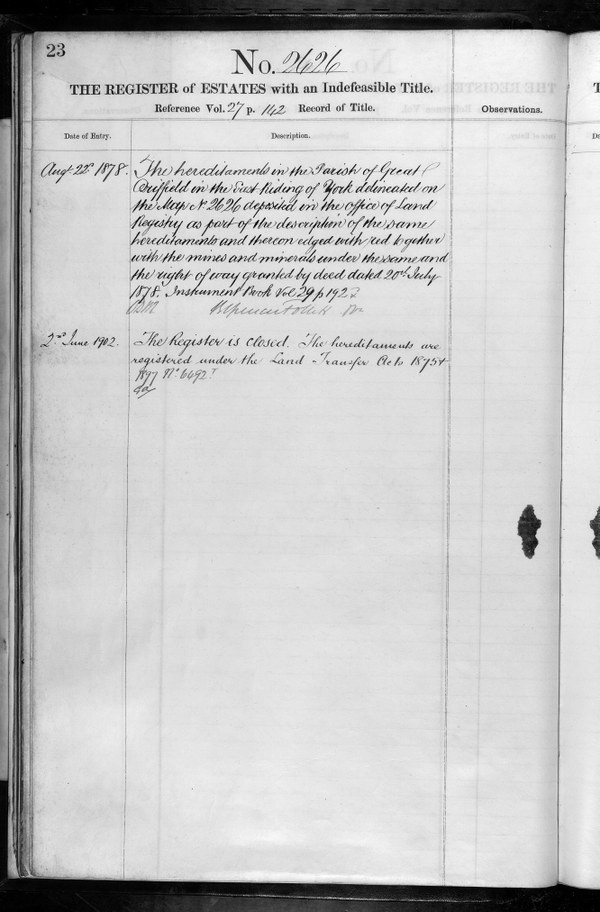 23
No. 2626
THE REGISTER of ESTATES with an Indefeasible Title.
Reference Vol. 27 p. 142 Record of Title.
Observations.
Date of Entry.
Description.
Augt 22d 1878.
The hereditaments in the Parish of Great
Driffield in the East Riding of York delineated on
the Map No 2626 deposited in the office of Land
Registry as part of the description of the same
hereditaments and thereon edged with red together
with the mines and minerals under the same and
the right of way granted by deed dated 20th July
1878. Instrument Book Vol 29 p 192
2nd June 1902.
The Register is closed. The hereditaments are
registered under the Land Transfer Acts 1875 &
1897 No 6492